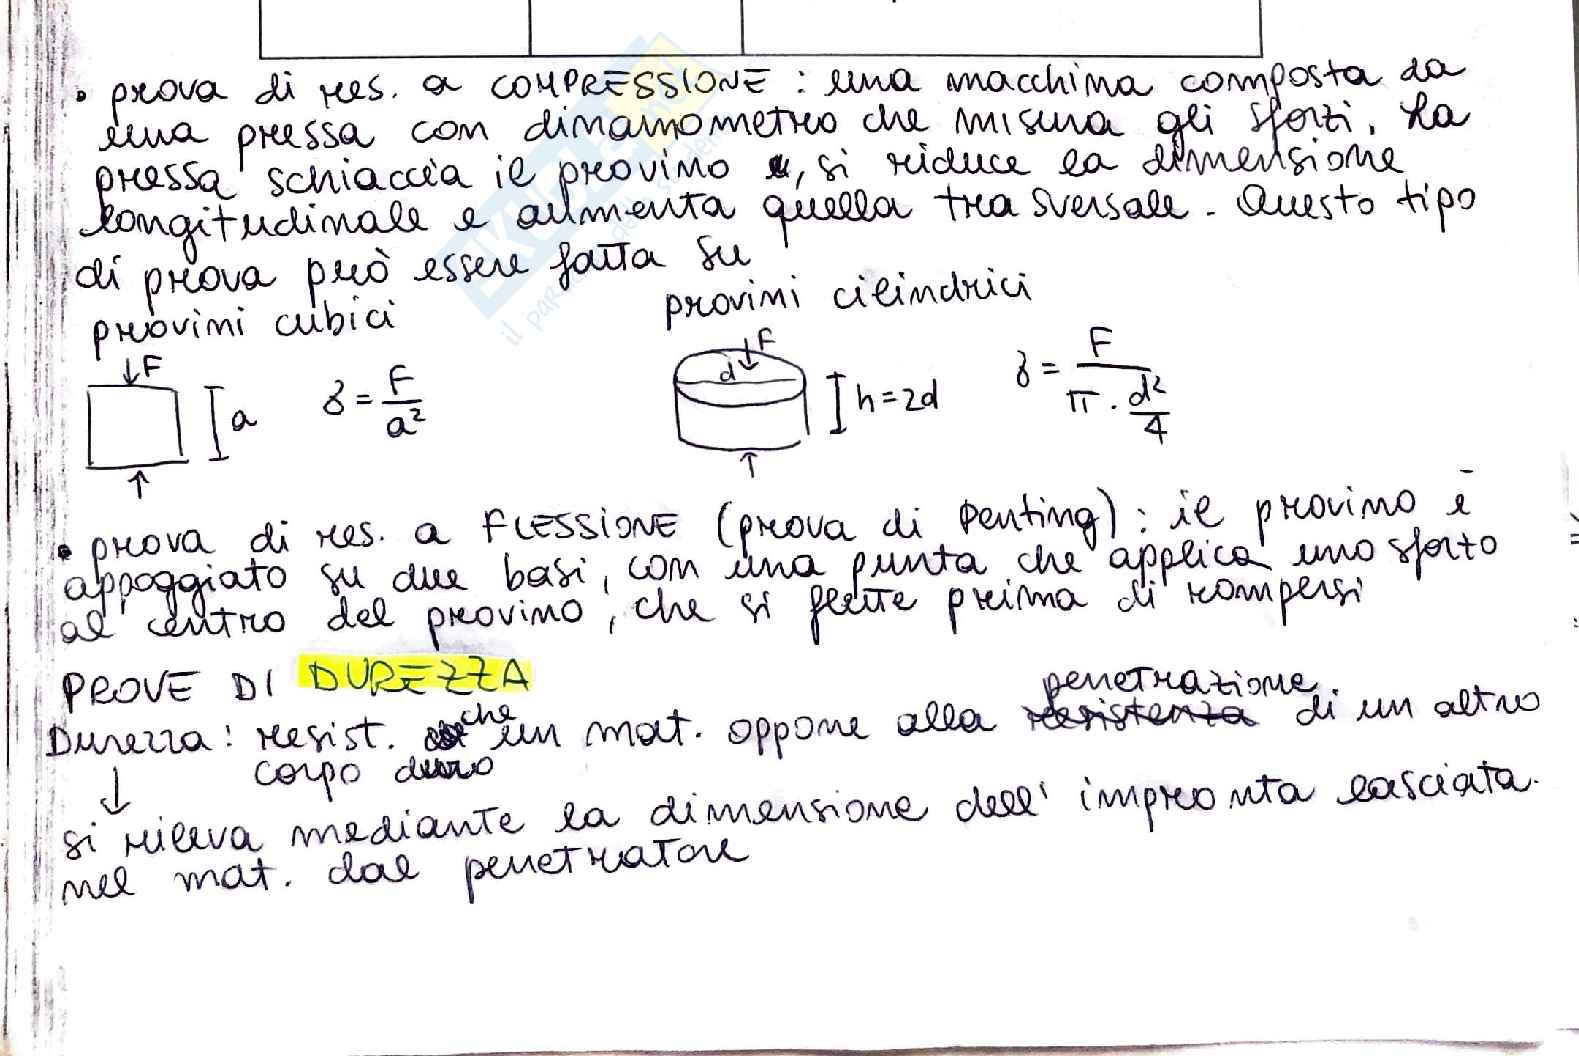 • prova di res. a COMPRESSIONE : una macchina composta da
una pressa con dinamometro che misura gli sforzi. La
pressa schiaccia il provino , si riduce la dimensione
longitudinale e aumenta quella trasversale. Questo tipo
di prova può essere fatta su
provini cubici
provini cilindrici
F
a
δ = F / a²
F
d
h = 2d
δ = F / π · d²/4
• prova di res. a FLESSIONE (prova di Penting) : il provino è
appoggiato su due basi, con una punta che applica uno sforzo
al centro del provino, che si flette prima di rompersi
PROVE DI DUREZZA
Durezza : resist. che un mat. oppone alla penetrazione di un altro
corpo duro
↓
si rileva mediante la dimensione dell' impronta lasciata
nel mat. dal penetratore